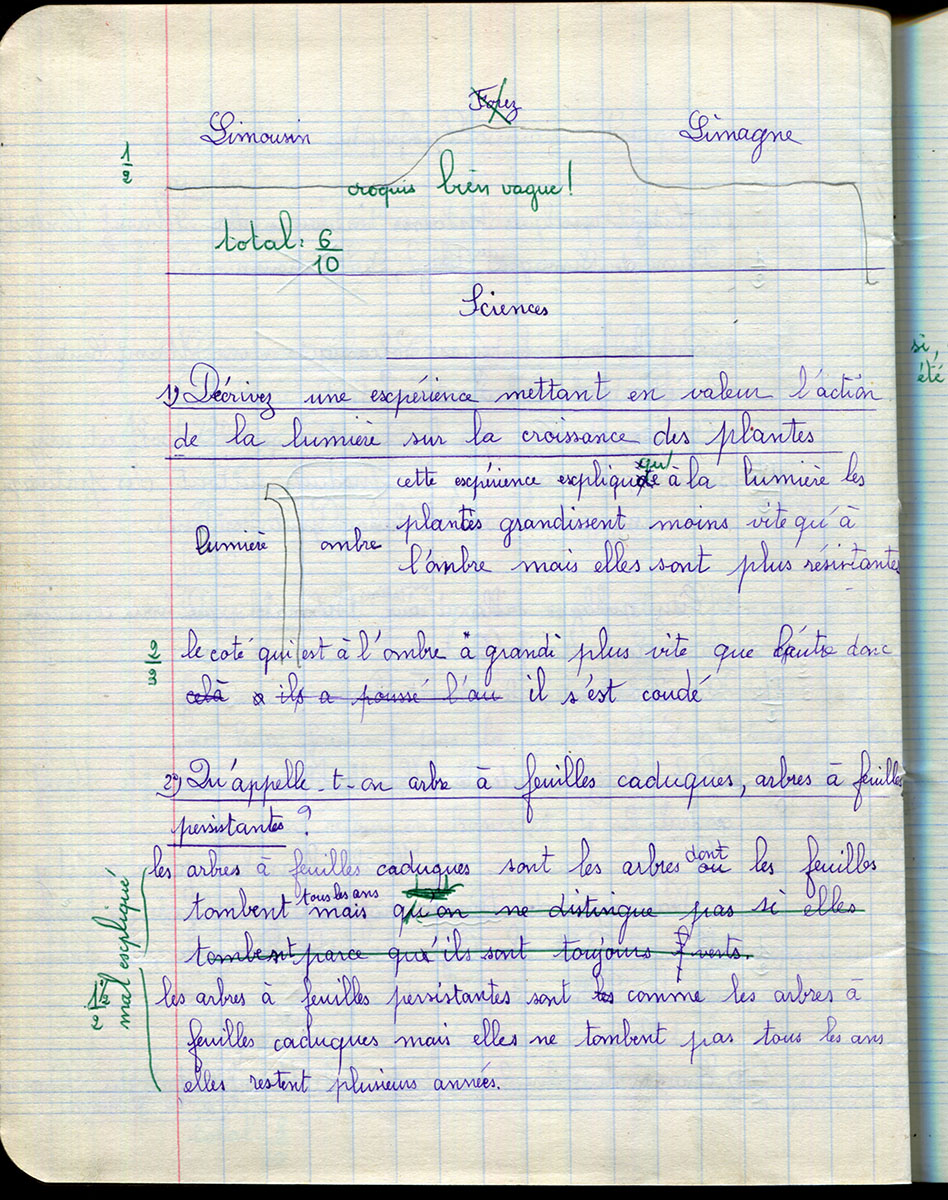 Forez
Limousin Limagne
1/2
croquis bien vague!
total: 6/10
Sciences
si,
été
1) Décrivez une expérience mettant en valeur l'action
de la lumière sur la croissance des plantes
qu'
cette expérience explique à la lumière les
plantes grandissent moins vite qu'à
lumière ombre
l'ombre mais elles sont plus résistantes
le coté qui est à l'ombre à grandi plus vite que l'autre donc
celà ils a poussé l'au il s'est coudé
2) Qu'appelle-t-on arbre à feuilles caduques, arbres à feuilles
persistantes ?
les arbres à feuilles caduques sont les arbres dont ou les feuilles
tombent tous les ans mais qu'on ne distingue pas si elles
tombent parce qu'ils sont toujours verts.
mal expliqué
les arbres à feuilles persistantes sont les comme les arbres à
feuilles caduques mais elles ne tombent pas tous les ans
elles restent plusieurs années.